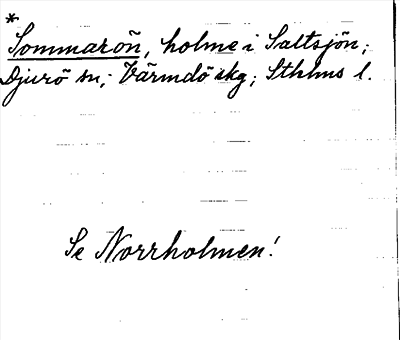 *
Sommarön, holme i Saltsjön;
Djurö sn; Värmdö skg; Sthlms l.
Se Norrholmen!